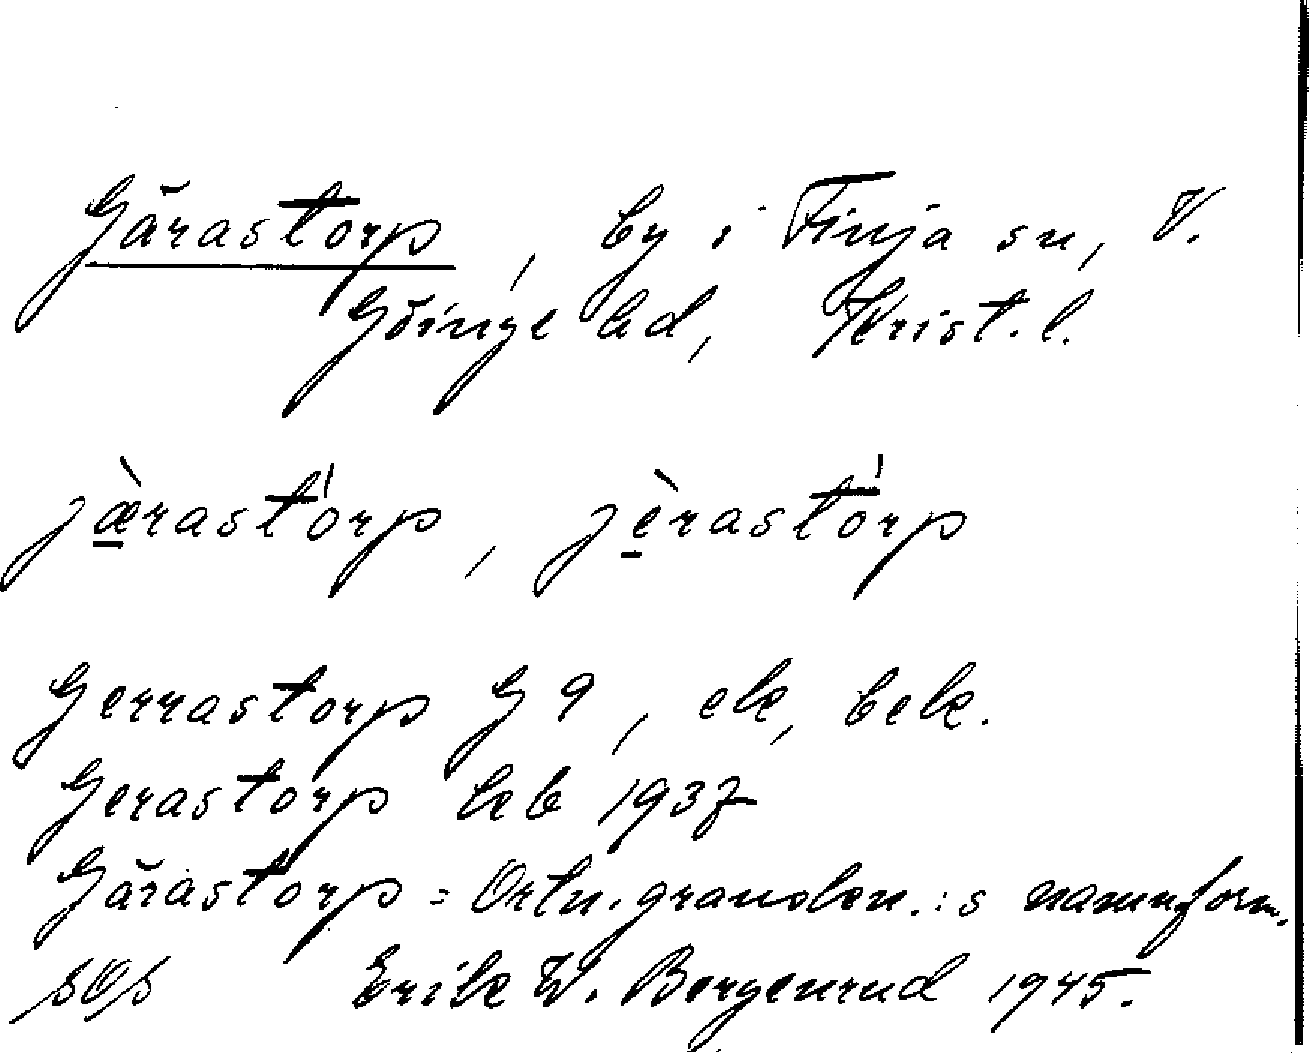 Gärastorp, by i Finja sn, V.
Göinge hd, Krist. l.
jæ̀rastórp, jèrastórp
Gerrastorp G 9, ek, bek.
Gerastorp kb 1937
Gärastorp = Ortn.granskn.:s namnform.
SOS Erik W. Bergenrud 1945.